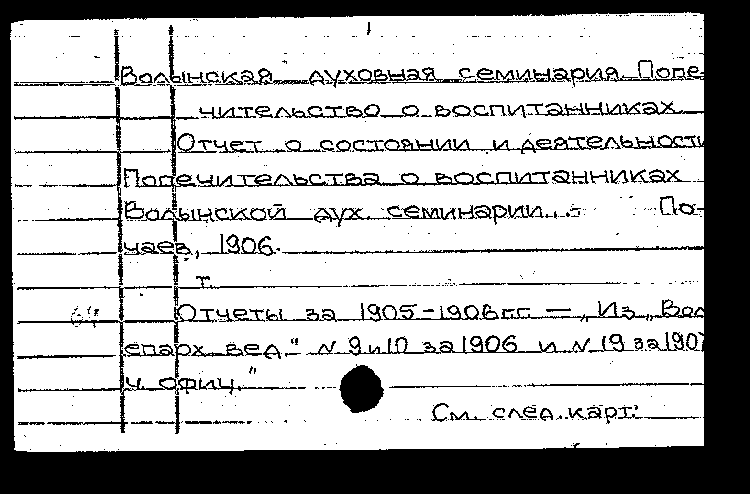 Волынская духовная семинария. Попе-
чительство о воспитанниках
Отчет о состоянии и деятельности
Попечительства о воспитанниках
Волынской дух. семинарии... - По-
чаев, 1906.
т.
Отчеты за 1905-1906 гг. — „Из „Вол
епарх. вед." N 9 и 10 за 1906 и N 19 за 1907
ч. офиц."
См. след. карт.